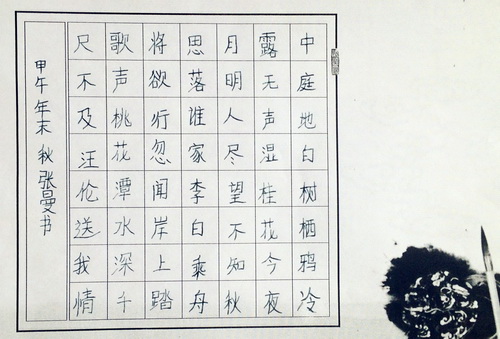 中庭地白树栖鸦冷
露无声湿桂花今夜
月明人尽望不知秋
思落谁家李白乘舟
将欲行忽闻岸上踏
歌声桃花潭水深千
尺不及汪伦送我情
甲午年末秋张曼书